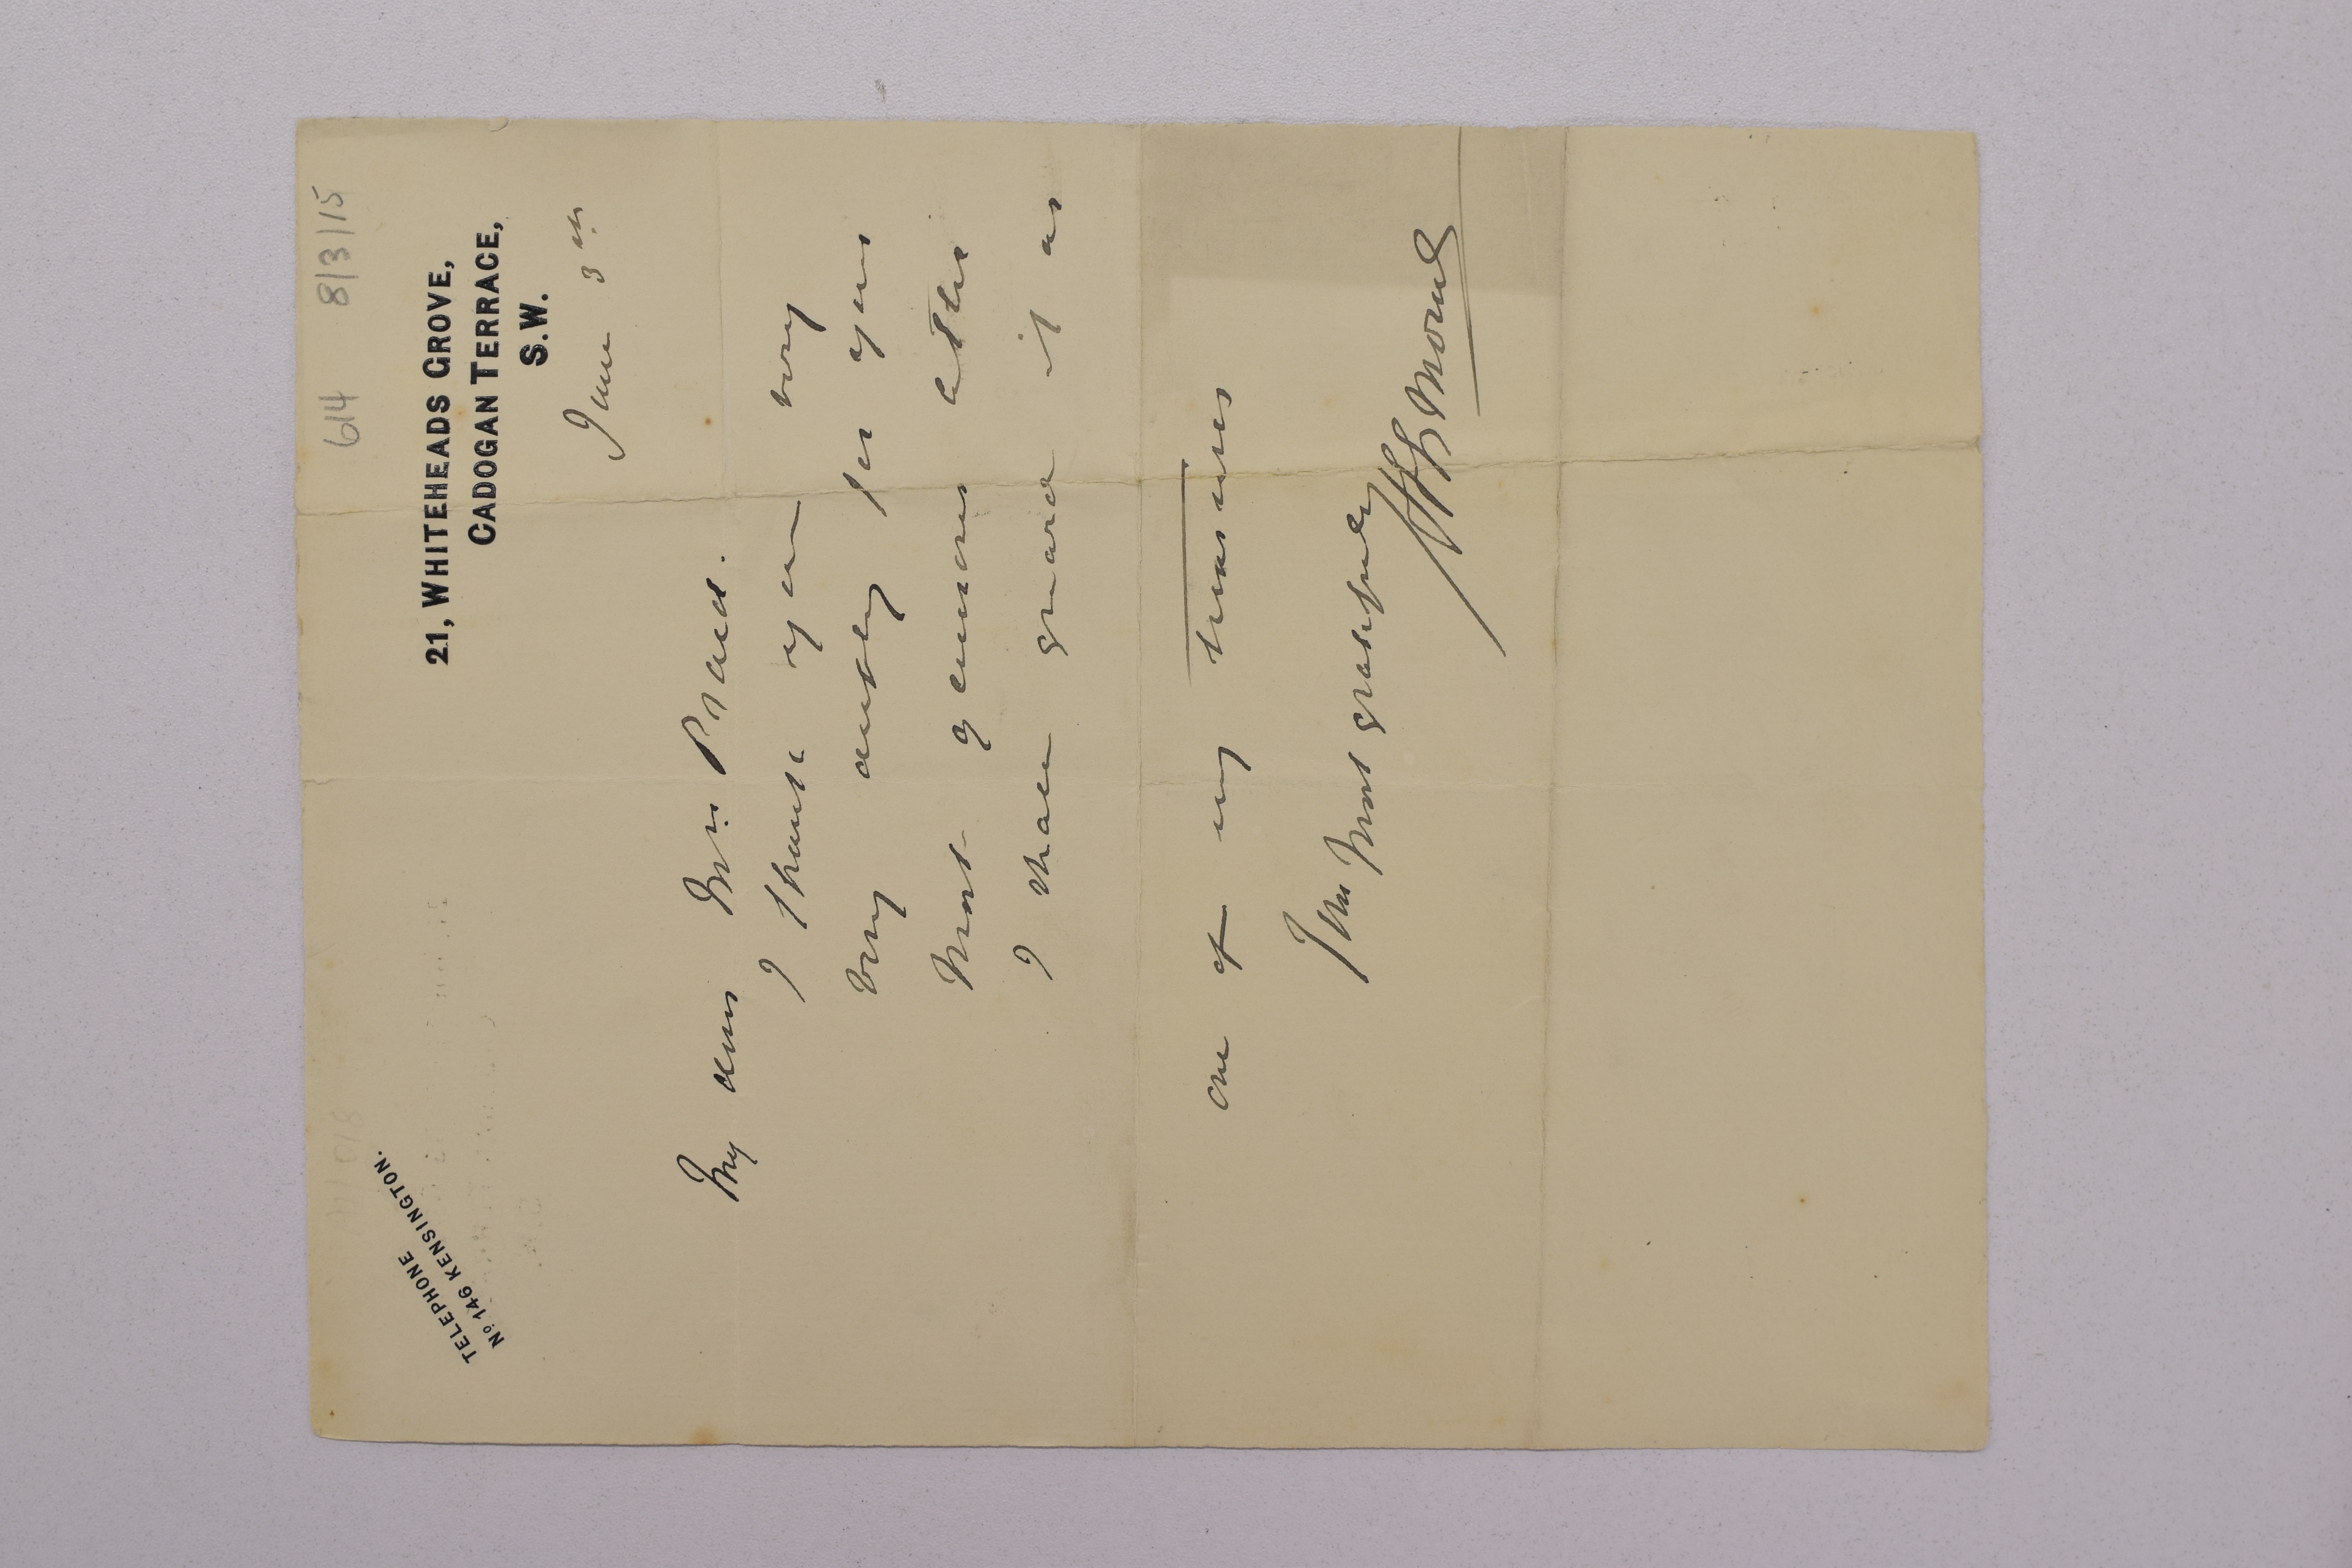 614 8/3/15
TELEPHONE
Nº 146 KENSINGTON.
21, WHITEHEADS GROVE,
CADOGAN TERRACE,
S.W.
June 3rd
My dear Mrs. Praed.
I thank you very
very dearly for your
most generous letter
I shall guard it as
one of my treasures
Yrs Most gratefully